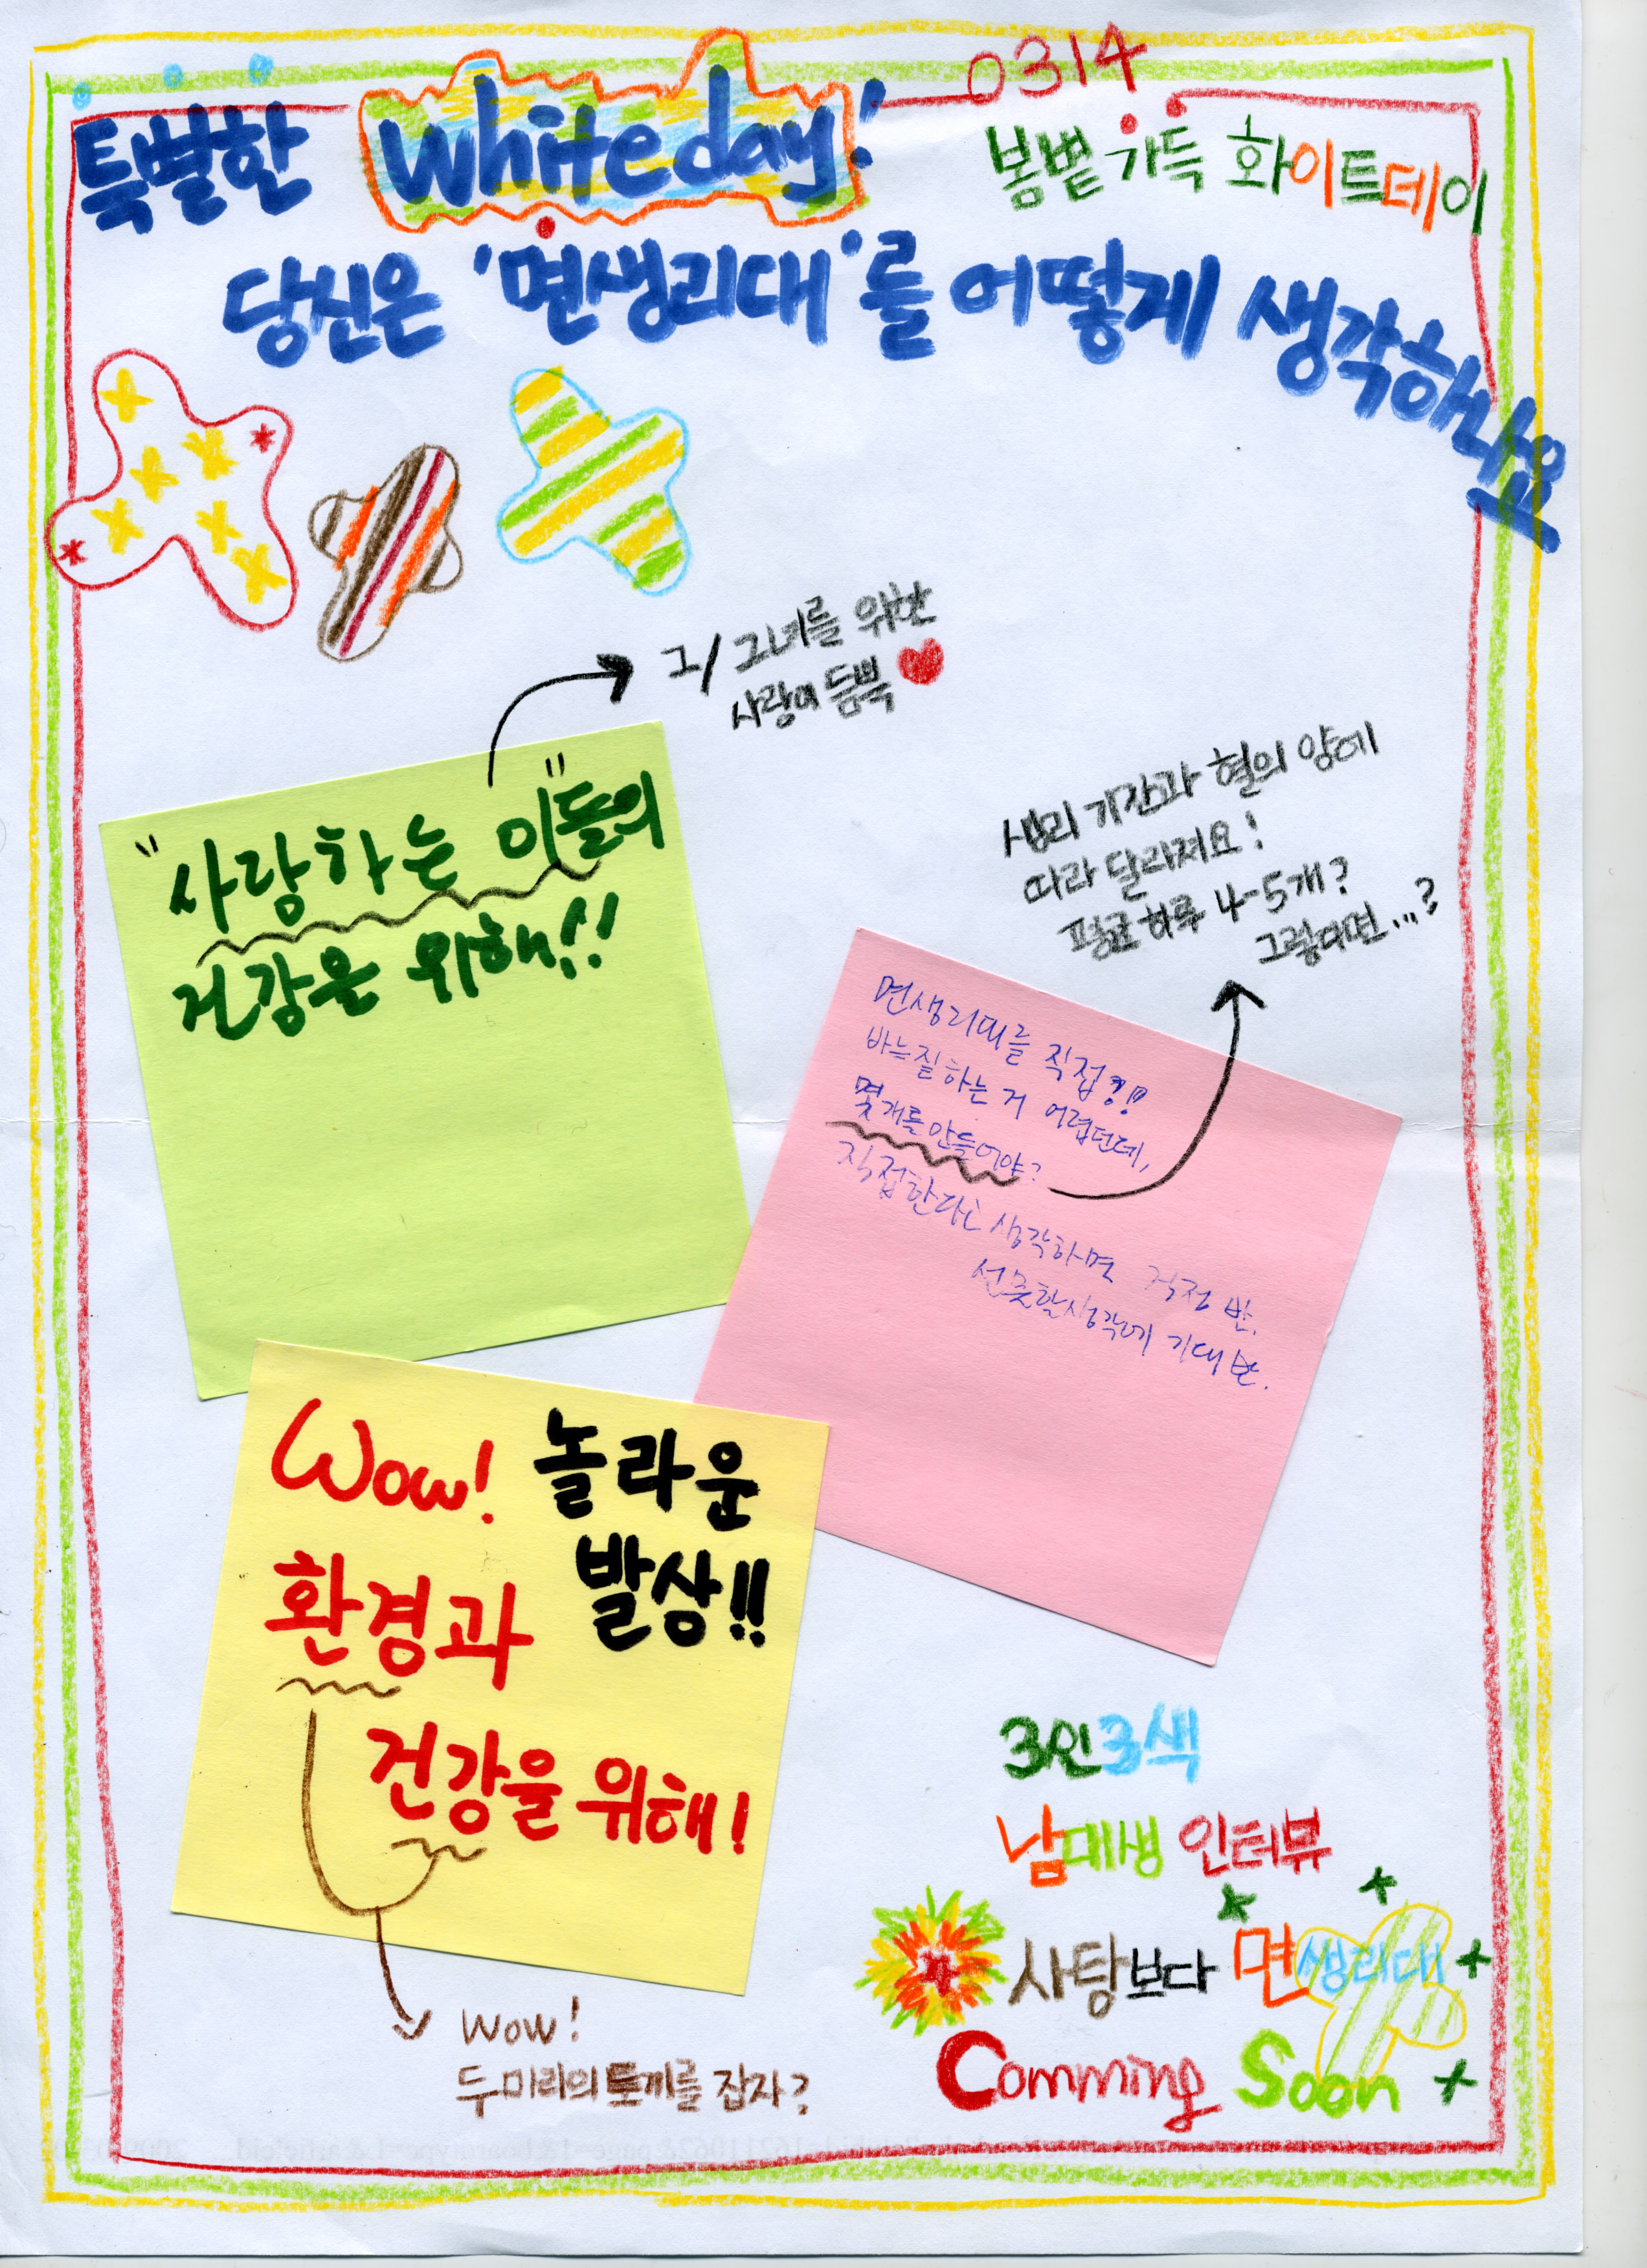 0314
특별한 White day!
봄볕 가득 화이트데이
당신은 '면생리대'를 어떻게 생각하나요
그/그녀를 위한
사랑이 듬뿍
"사랑하는 이"들의
건강은 위해!!
생리 기간과 혈의 양에
따라 달라져요!
평균 하루 4-5개?
그렇다면...?
면생리대를 직접?!!
바느질하는 거 어렵던데,
몇개를 만들어야?
직접한다고 생각하면 걱정 반.
선물할생각에 기대 반.
Wow! 놀라운
발상!!
환경과
건강을 위해!
Wow!
두마리의 토끼를 잡자?
3인3색
남대생 인터뷰
사탕보다 면생리대
Comming Soon